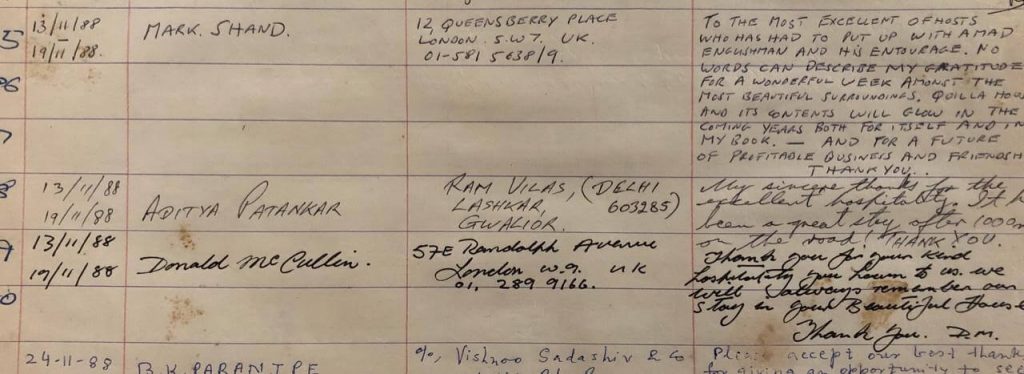 13/11/88
19/11/88.
MARK. SHAND.
12, QUEENSBERRY PLACE
LONDON. S.W.7. UK.
01-581 5638/9.
TO THE MOST EXCELLENT OF HOSTS
WHO HAS HAD TO PUT UP WITH A MAD
ENGLISHMAN AND HIS ENTOURAGE. NO
WORDS CAN DESCRIBE MY GRATITUDE
FOR A WONDERFUL WEEK AMONGST THE
MOST BEAUTIFUL SURROUNDINGS. QUILLA HOU
AND ITS CONTENTS WILL GLOW IN THE
COMING YEARS BOTH FOR ITSELF AND IN
MY BOOK. — AND FOR A FUTURE
OF PROFITABLE BUSINESS AND FRIENDSH
THANK YOU..
13/11/88
19/11/88
ADITYA PATANKAR
RAM VILAS, (DELHI
LASHKAR, 603285)
GWALIOR.
My sincere thanks for the
excellent hospitality. It h
been a great stay after 1000
on the road! THANK YOU.
13/11/88
19/11/88
Donald McCullin.
57E Randolph Avenue
London W.9. UK
01, 289 9166.
Thank you for your kind
hospitality you have shown to us. we
will always remember our
stay in your Beautiful House
Thank You. D.M.
24-11-88
B.K. PARANJPE
c/o, Vishnoo Sadashiv & Co
Please accept our best thank
for giving an opportunity to see